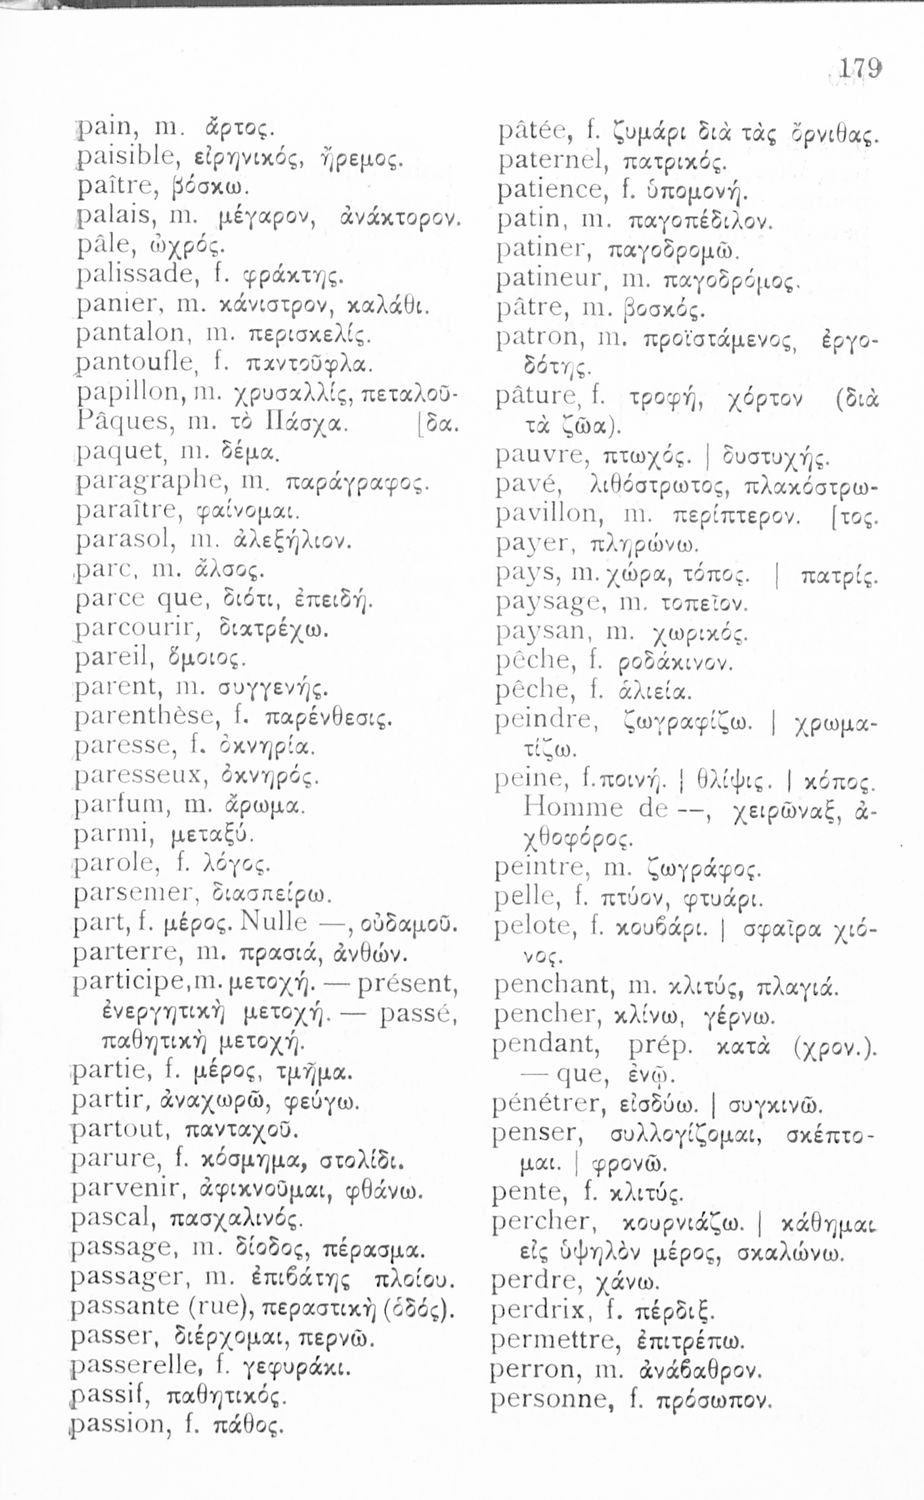 179
pain, m. ἄρτος.
paisible, εἰρηνικός, ἤρεμος.
paître, βόσκω.
palais, m. μέγαρον, ἀνάκτορον.
pâle, ὠχρός.
palissade, f. φράκτης.
panier, m. κάνιστρον, καλάθι.
pantalon, m. περισκελίς.
pantoufle, f. παντοῦφλα.
papillon, m. χρυσαλλίς, πεταλοῦ-
Pâques, m. τὸ Πάσχα. [δα.
paquet, m. δέμα.
paragraphe, m. παράγραφος.
paraître, φαίνομαι.
parasol, m. ἀλεξήλιον.
parc, m. ἄλσος.
parce que, διότι, ἐπειδή.
parcourir, διατρέχω.
pareil, ὅμοιος.
parent, m. συγγενής.
parenthèse, f. παρένθεσις.
paresse, f. ὀκνηρία.
paresseux, ὀκνηρός.
parfum, m. ἄρωμα.
parmi, μεταξύ.
parole, f. λόγος.
parsemer, διασπείρω.
part, f. μέρος. Nulle —, οὐδαμοῦ.
parterre, m. πρασιά, ἀνθών.
participe, m. μετοχή. — présent,
ἐνεργητικὴ μετοχή. — passé,
παθητικὴ μετοχή.
partie, f. μέρος, τμῆμα.
partir, ἀναχωρῶ, φεύγω.
partout, πανταχοῦ.
parure, f. κόσμημα, στολίδι.
parvenir, ἀφικνοῦμαι, φθάνω.
pascal, πασχαλινός.
passage, m. δίοδος, πέρασμα.
passager, m. ἐπιβάτης πλοίου.
passante (rue), περαστικὴ (ὁδός).
passer, διέρχομαι, περνῶ.
passerelle, f. γεφυράκι.
passif, παθητικός.
passion, f. πάθος.
pâtée, f. ζυμάρι διὰ τὰς ὄρνιθας.
paternel, πατρικός.
patience, f. ὑπομονή.
patin, m. παγοπέδιλον.
patiner, παγοδρομῶ.
patineur, m. παγοδρόμος.
pâtre, m. βοσκός.
patron, m. προϊστάμενος, ἐργο-
δότης.
pâture, f. τροφή, χόρτον (διὰ
τὰ ζῶα).
pauvre, πτωχός. | δυστυχής.
pavé, λιθόστρωτος, πλακόστρω-
pavillon, m. περίπτερον. [τος.
payer, πληρώνω.
pays, m. χώρα, τόπος. | πατρίς.
paysage, m. τοπεῖον.
paysan, m. χωρικός.
pêche, f. ροδάκινον.
pêche, f. ἁλιεία.
peindre, ζωγραφίζω. | χρωμα-
τίζω.
peine, f. ποινή. | θλίψις. | κόπος.
Homme de —, χειρῶναξ, ἀ-
χθοφόρος.
peintre, m. ζωγράφος.
pelle, f. πτύον, φτυάρι.
pelote, f. κουβάρι. | σφαῖρα χιό-
νος.
penchant, m. κλιτύς, πλαγιά.
pencher, κλίνω, γέρνω.
pendant, prép. κατὰ (χρον.).
— que, ἐνῷ.
pénétrer, εἰσδύω. | συγκινῶ.
penser, συλλογίζομαι, σκέπτο-
μαι. | φρονῶ.
pente, f. κλιτύς.
percher, κουρνιάζω. | κάθημαι
εἰς ὑψηλὸν μέρος, σκαλώνω.
perdre, χάνω.
perdrix, f. πέρδιξ.
permettre, ἐπιτρέπω.
perron, m. ἀνάβαθρον.
personne, f. πρόσωπον.